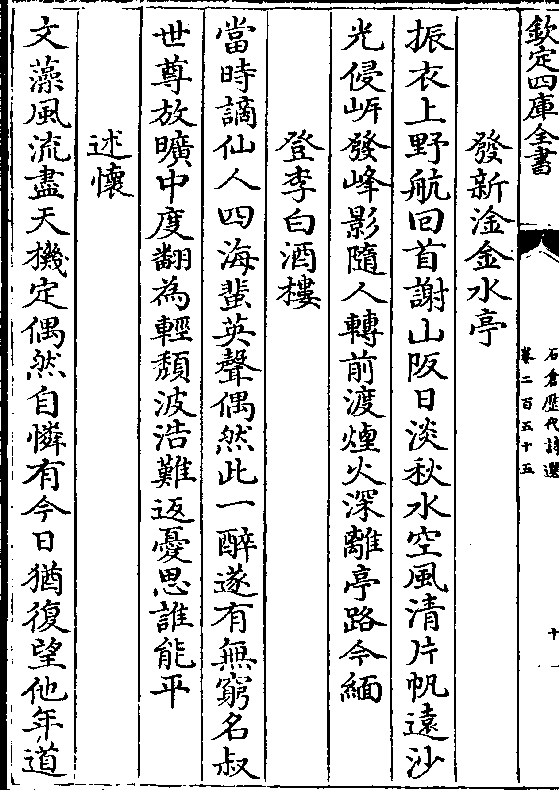 欽定四庫全書
石倉歷代詩選
卷二百五十五
十
發新淦金水亭
振衣上野航回首謝山阪日淡秋水空風清片帆遠沙
光侵岍發峰影隨人轉前渡煙火深離亭路今緬
登李白酒樓
當時謫仙人四海蜚英聲偶然此一醉遂有無窮名叔
世尊放曠中度翻為輕頹波浩難返憂思誰能平
述懷
文藻風流盡天機定偶然自憐有今日猶復望他年道